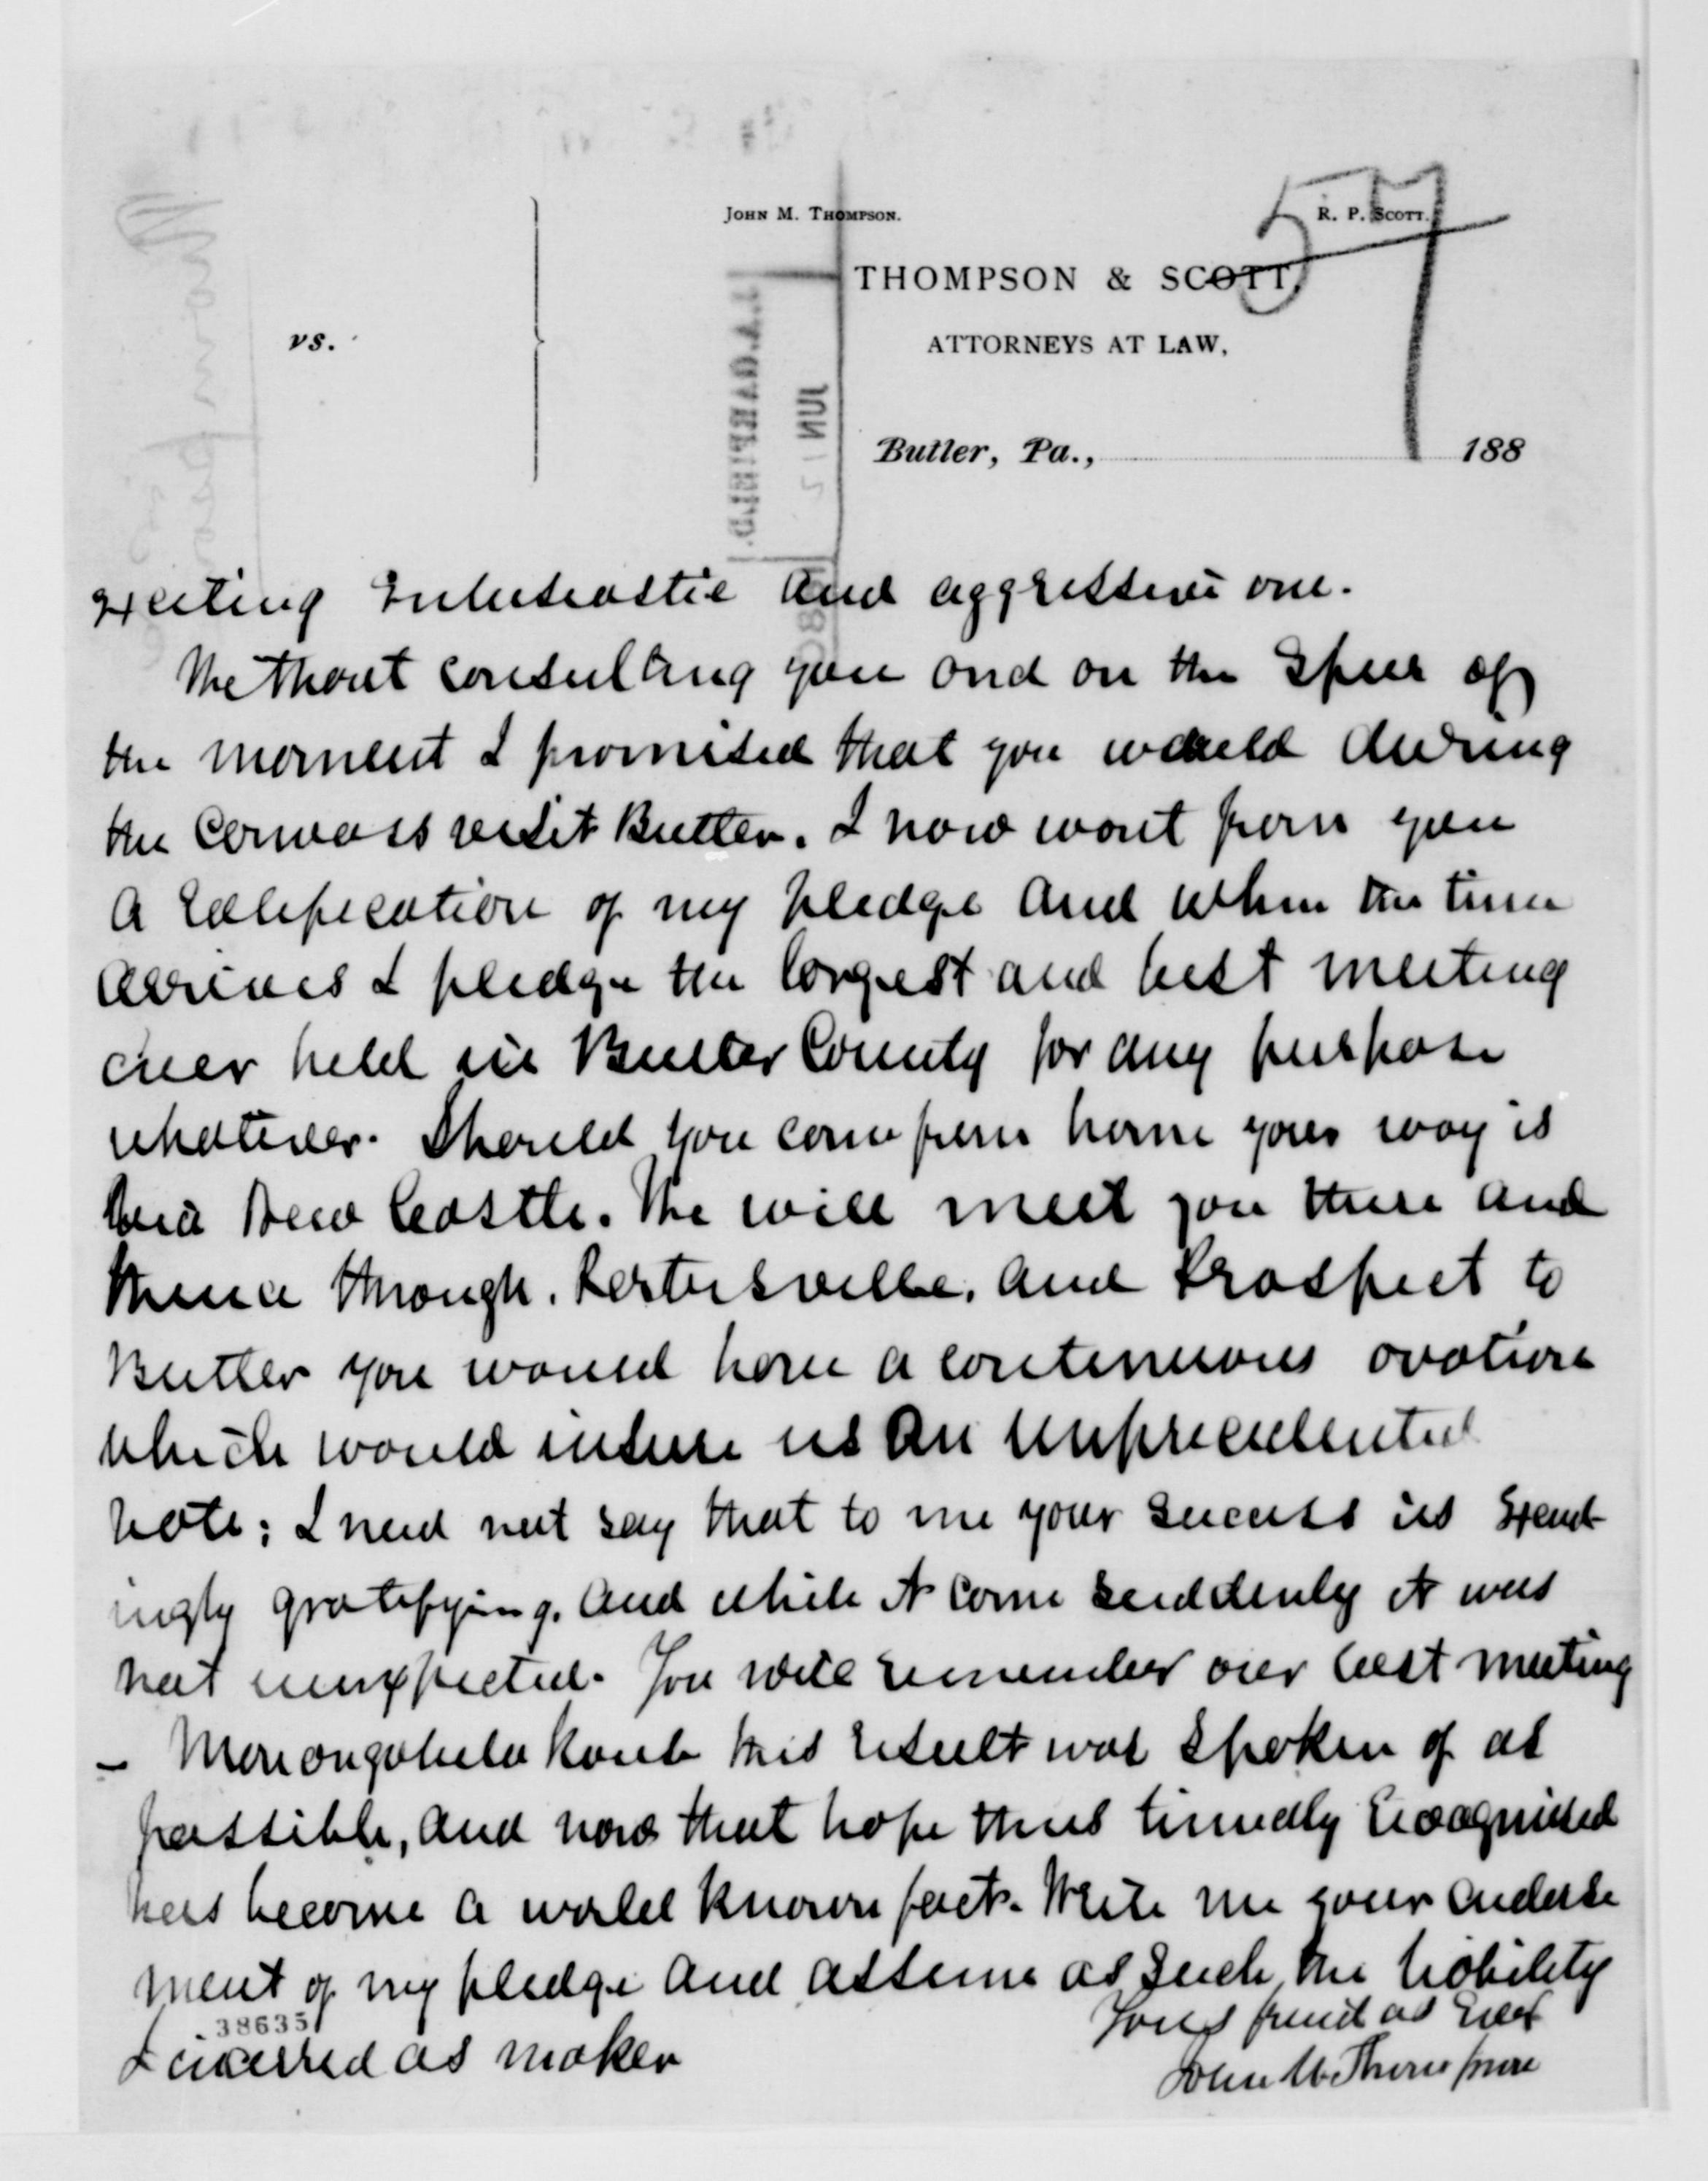 JOHN M. THOMPSON. R. P. SCOTT.
THOMPSON & SCOTT,
vs. ATTORNEYS AT LAW,
Butler, Pa., 188
57
JUN 12
exciting Enthusiastic and aggressive one.
Without consulting you and on the Spur of
the moment I promised that you would during
the Canvass visit Butler. I now want from you
A Ratification of my pledge and when the time
Arrives I pledge the largest and best meeting
ever held in Butler County for any purpose
whatever. Should you come from home your way is
via New Castle. We will meet you there and
thence through. Portersville. and Prospect to
Butler you would have a continuous ovation
which would insure us an Unprecedented
vote; I need not say that to me your Success is Exceed-
ingly gratifying. And while it Came Suddenly it was
not unexpected. You will remember our last meeting
– Monongahela House this result was Spoken of as
possible, and now that hope thus timidly Recognized
has become a world known fact. Write me your Endorse
ment of my pledge and assume as Such the liability
38635
I incurred as maker
Yours friend as Ever
John M. Thompson